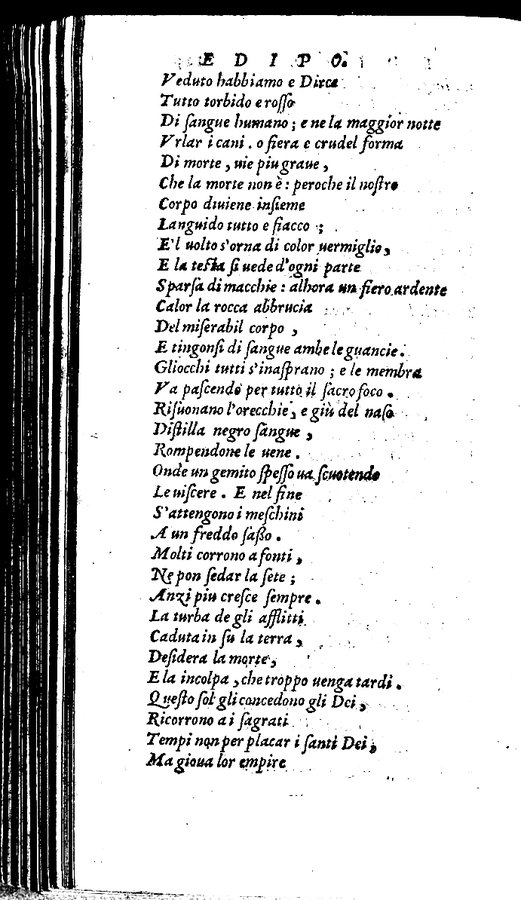 E D I P O.
Veduto habbiamo e Dirce
Tutto torbido e roſſo
Di ſangue humano; e ne la maggior notte
Vrlar i cani. o fiera e crudel forma
Di morte, uie piu graue,
Che la morte non è: peroche il noſtro
Corpo diuiene inſieme
Languido tutto e fiacco;
E'l uolto s'orna di color uermiglio,
E la teſta ſi uede d'ogni parte
Sparſa di macchie: alhora un fiero ardente
Calor la rocca abbrucia
Del miſerabil corpo,
E tingonſi di ſangue ambe le guancie.
Gliocchi tutti s'inaſprano; e le membra
Va paſcendo per tutto il ſacro foco.
Riſuonano l'orecchie, e giù del naſo
Diſtilla negro ſangue,
Rompendone le uene.
Onde un gemito ſpeſſo ua ſcuotendo
Le uiſcere. E nel fine
S'attengono i meſchini
A un freddo ſaßo.
Molti corrono a fonti,
Ne pon ſedar la ſete;
Anzi piu creſce ſempre.
La turba de gli afflitti
Caduta in ſu la terra,
Deſidera la morte,
E la incolpa, che troppo uenga tardi.
Queſto ſol gli concedono gli Dei,
Ricorrono a i ſagrati
Tempi non per placar i ſanti Dei,
Ma gioua lor empire